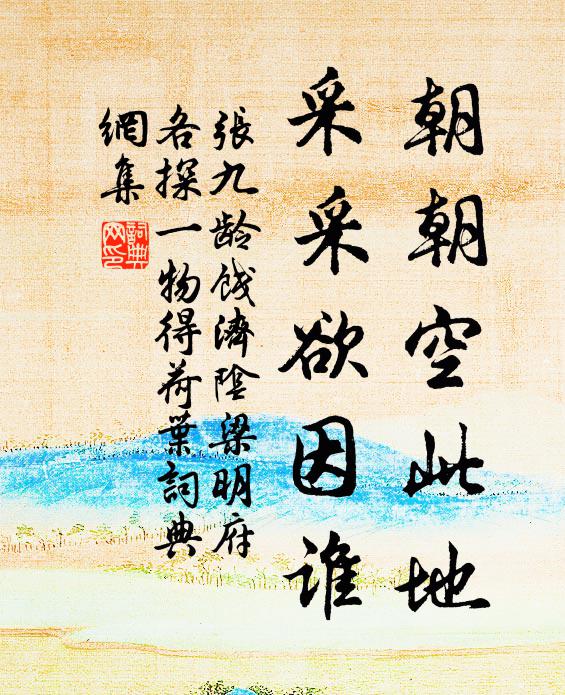 朝朝空此地
采采欲因谁
张九龄饯济阴梁明府
各探一物得荷葉詞典
網集
詞典
网印